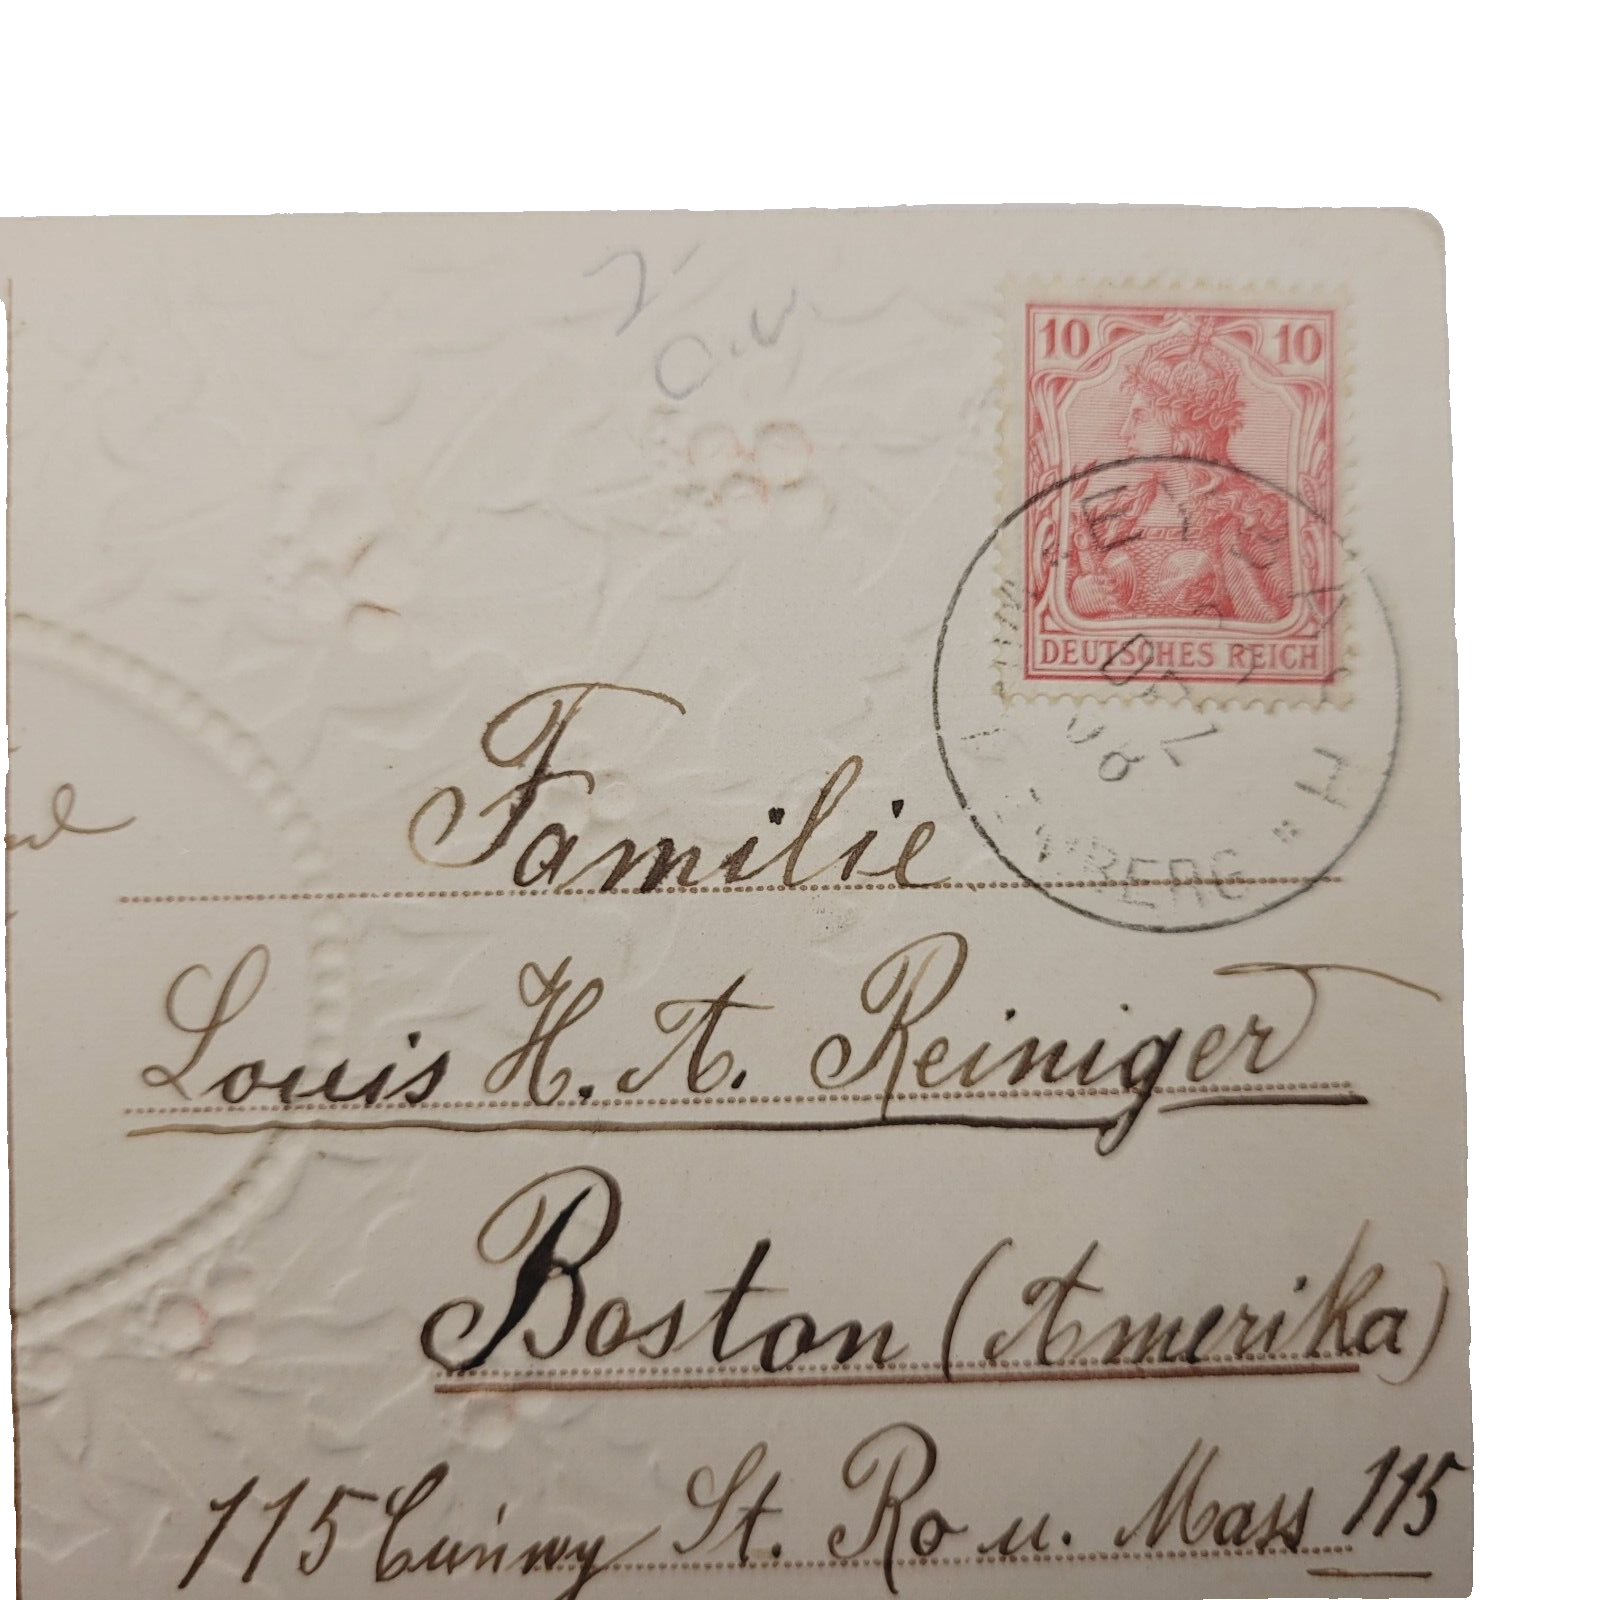 10 10
DEUTSCHES REICH
DEZ
08
BERG
Familie
Louis H. A. Reiniger
Boston (Amerika)
115 St. Ro u. Mass 115